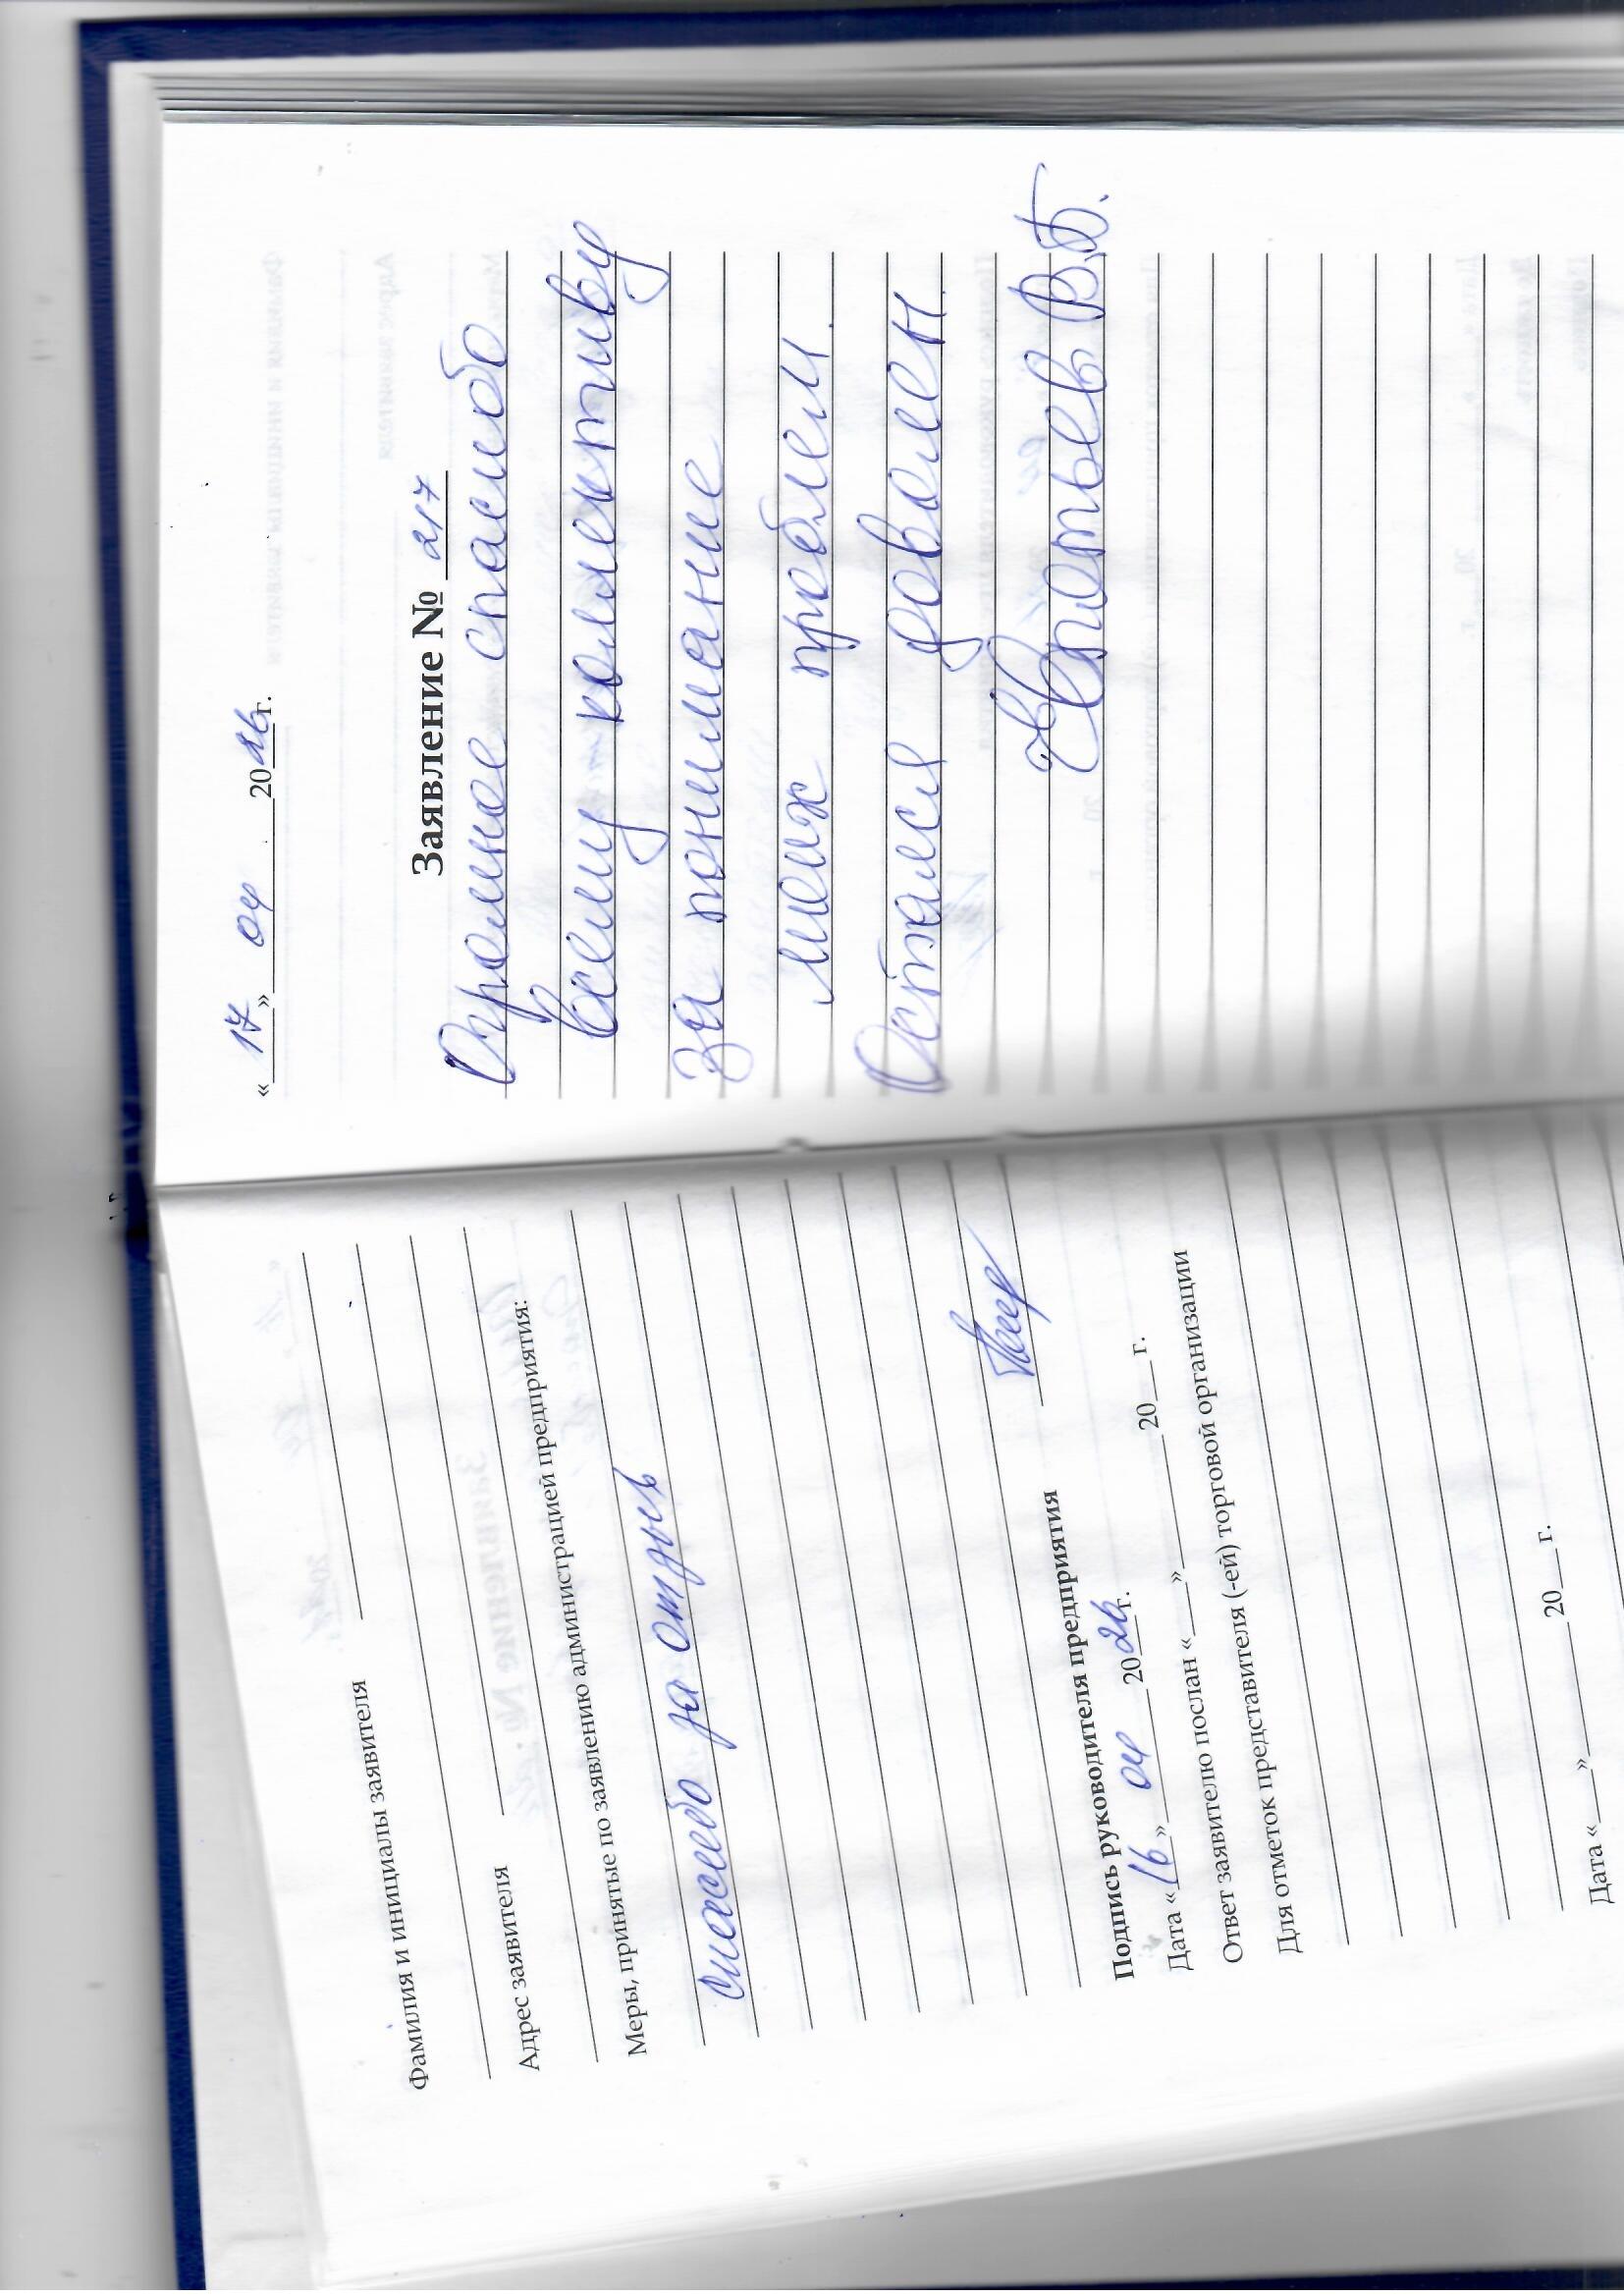 Фамилия и инициалы заявителя
Адрес заявителя
Меры, принятые по заявлению администрацией предприятия:
спасибо за отзыв
Подпись руководителя предприятия
Дата «16» 04 2026г.
Ответ заявителю послан «___»________ 20__ г.
Для отметок представителя (-ей) торговой организации
Дата «___»________ 20__ г.
«17» 04 2026г.
Заявление № 217
Огромное спасибо
всему коллективу
за понимание
моих проблем.
Остался доволен.
В.Б.